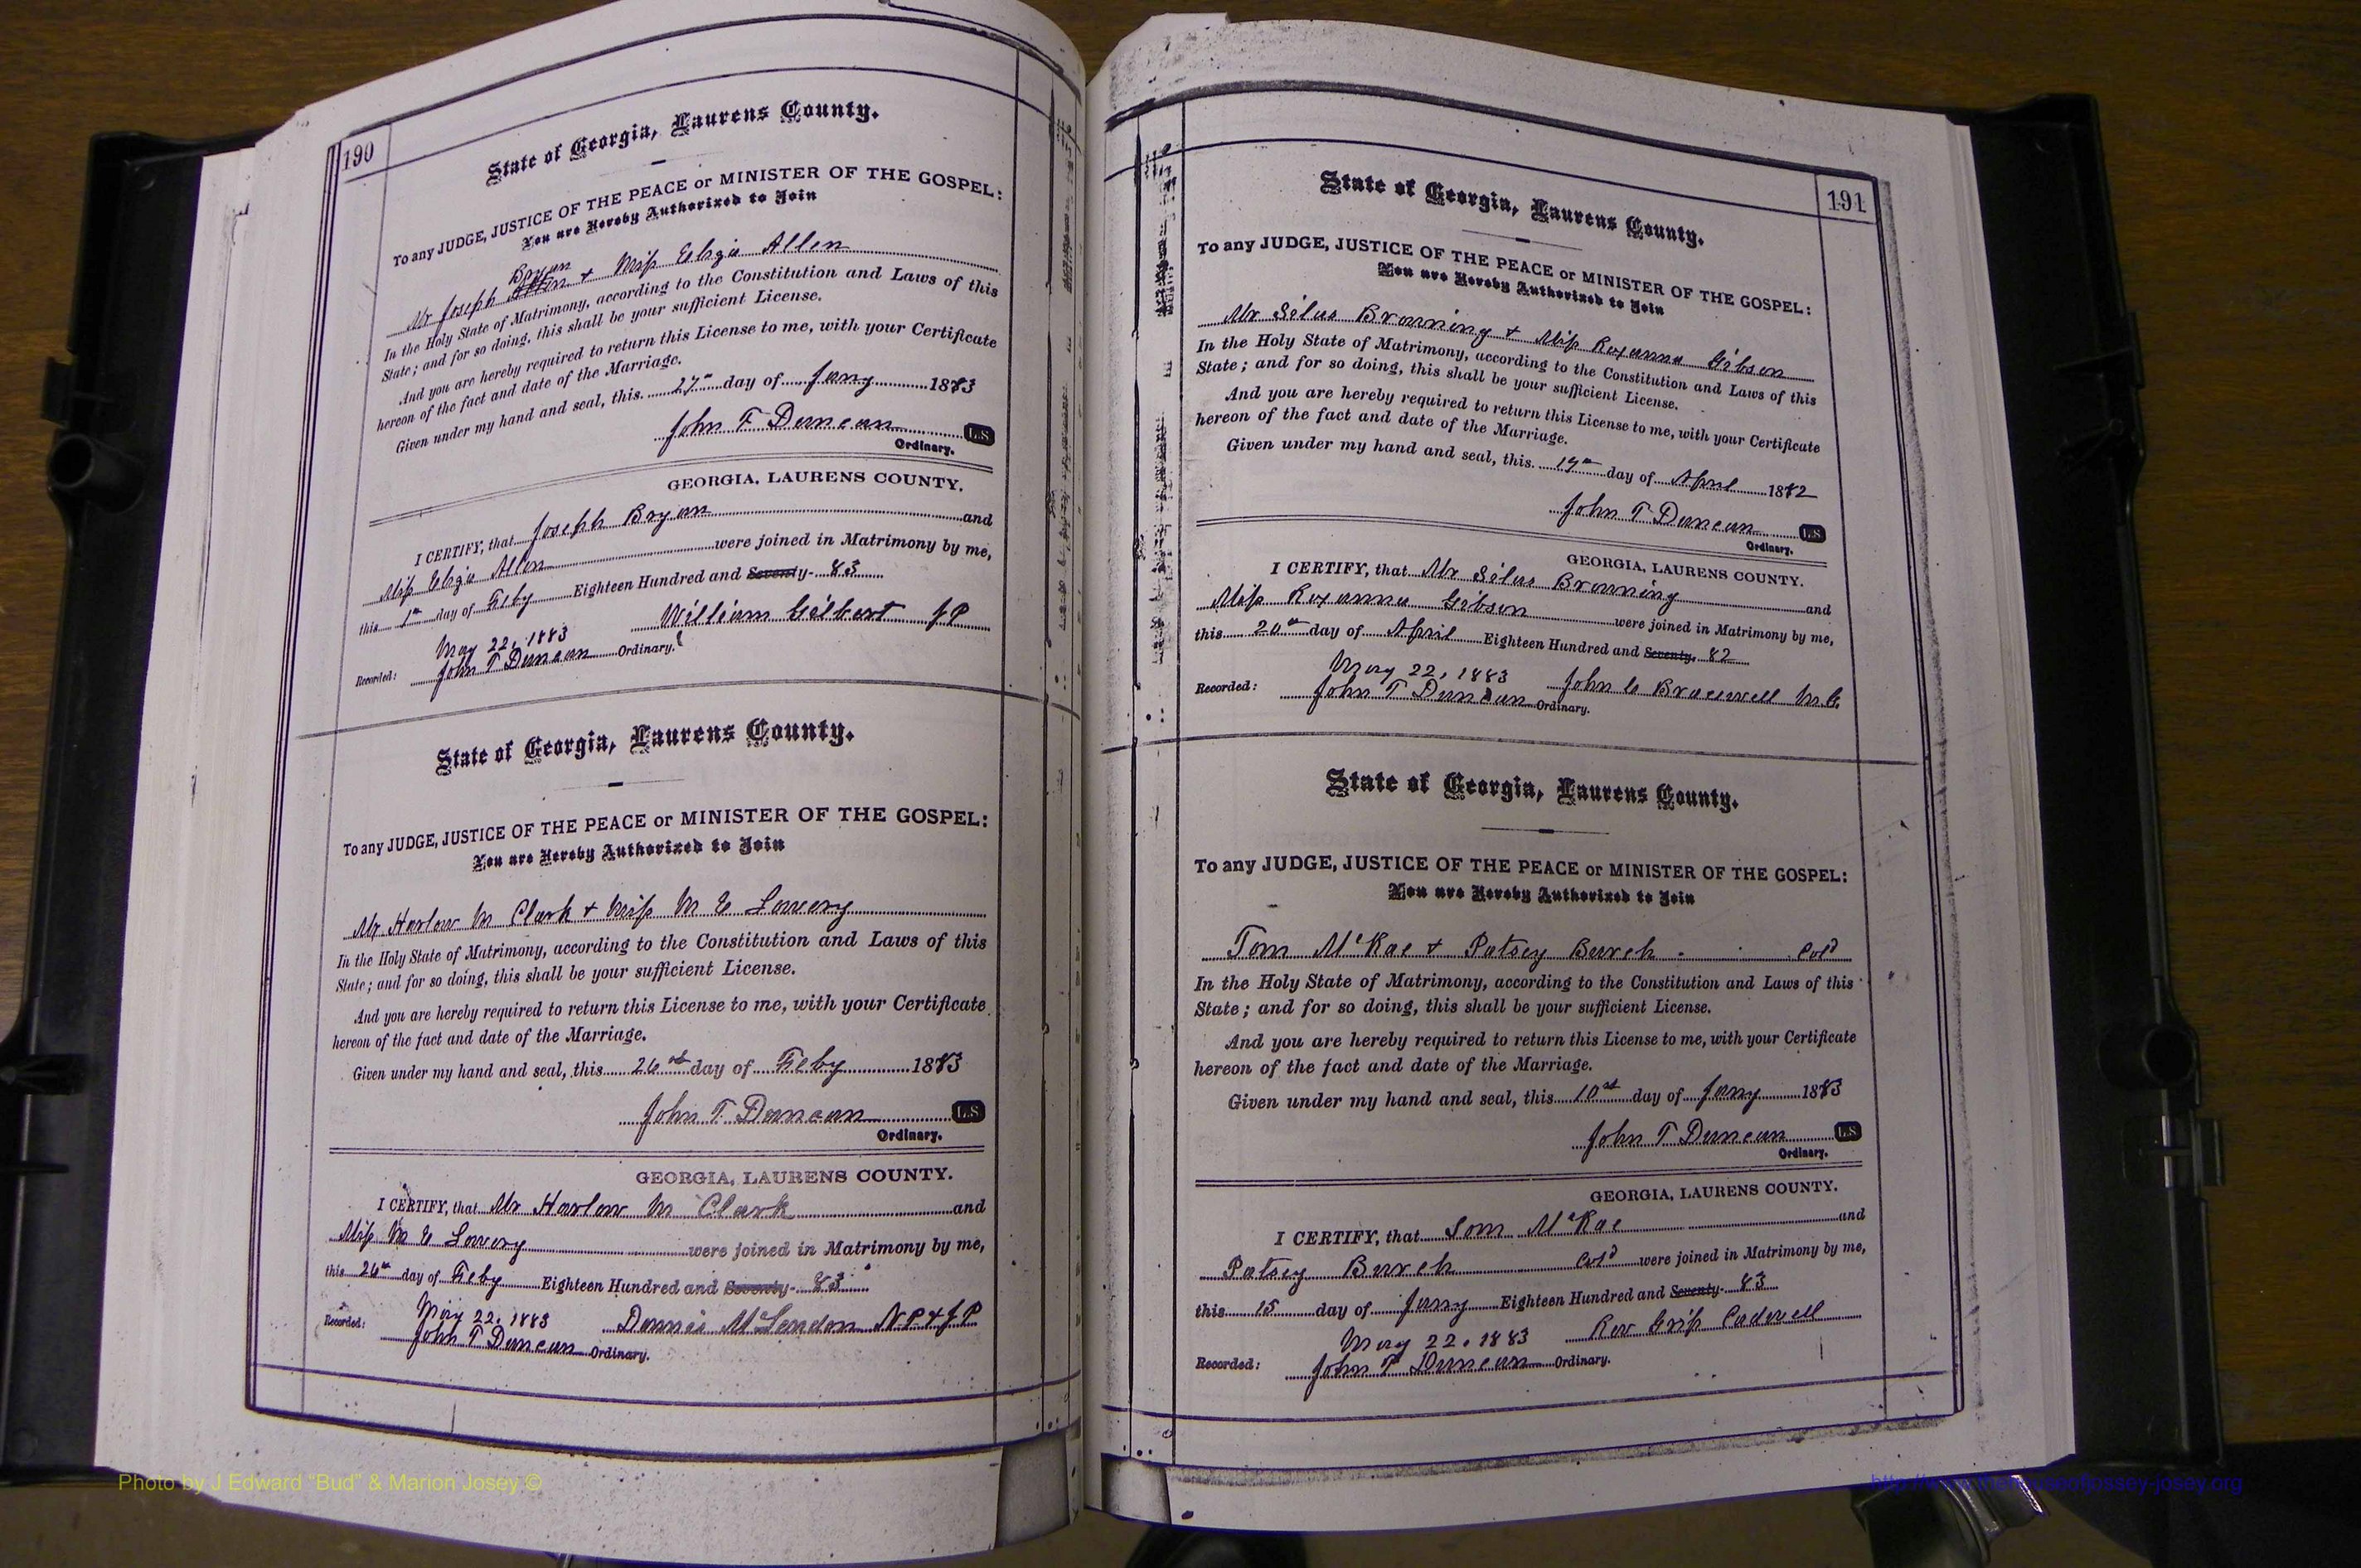 190
State of Georgia, Laurens County.
To any JUDGE, JUSTICE OF THE PEACE or MINISTER OF THE GOSPEL:
You are Hereby Authorized to Join
Bryan
Mr Joseph & Miss Eliza Allen
In the Holy State of Matrimony, according to the Constitution and Laws of this
State; and for so doing, this shall be your sufficient License.
And you are hereby required to return this License to me, with your Certificate
hereon of the fact and date of the Marriage.
Given under my hand and seal, this 27th day of Jany 1883
John T Duncan L.S
Ordinary.
GEORGIA, LAURENS COUNTY.
I CERTIFY, that Joseph Bryan and
Miss Eliza Allen were joined in Matrimony by me,
this 1st day of Feby Eighteen Hundred and Seventy- 83
William Gilbert JP
May 22, 1883
Recorded: John T Duncan Ordinary.
State of Georgia, Laurens County.
To any JUDGE, JUSTICE OF THE PEACE or MINISTER OF THE GOSPEL:
You are Hereby Authorized to Join
Mr Harlow M Clark & Miss M E Lowery
In the Holy State of Matrimony, according to the Constitution and Laws of this
State; and for so doing, this shall be your sufficient License.
And you are hereby required to return this License to me, with your Certificate
hereon of the fact and date of the Marriage.
Given under my hand and seal, this 26th day of Feby 1883
John T. Duncan L.S
Ordinary.
GEORGIA, LAURENS COUNTY.
I CERTIFY, that Mr Harlow M Clark and
Miss M E Lowery were joined in Matrimony by me,
this 26th day of Feby Eighteen Hundred and Seventy- 83
May 22, 1883 Dennis McLendon N.P & J P
Recorded: John T Duncan Ordinary.
191
State of Georgia, Laurens County.
To any JUDGE, JUSTICE OF THE PEACE or MINISTER OF THE GOSPEL:
You are Hereby Authorized to Join
Mr Silas Browning & Miss Roxanna Gibson
In the Holy State of Matrimony, according to the Constitution and Laws of this
State; and for so doing, this shall be your sufficient License.
And you are hereby required to return this License to me, with your Certificate
hereon of the fact and date of the Marriage.
Given under my hand and seal, this day of April 1882
John T Duncan L.S
Ordinary.
GEORGIA, LAURENS COUNTY.
I CERTIFY, that Mr Silas Browning and
Miss Roxanna Gibson were joined in Matrimony by me,
this 20th day of April Eighteen Hundred and Seventy- 82
May 22, 1883 John Bracewell M.G.
Recorded: John T Duncan Ordinary.
State of Georgia, Laurens County.
To any JUDGE, JUSTICE OF THE PEACE or MINISTER OF THE GOSPEL:
You are Hereby Authorized to Join
Tom McRae & Patsey Burch Cold
In the Holy State of Matrimony, according to the Constitution and Laws of this
State; and for so doing, this shall be your sufficient License.
And you are hereby required to return this License to me, with your Certificate
hereon of the fact and date of the Marriage.
Given under my hand and seal, this 10th day of Jany 1883
John T Duncan L.S
Ordinary.
GEORGIA, LAURENS COUNTY.
I CERTIFY, that Tom McRae and
Patsey Burch Cold were joined in Matrimony by me,
this 15 day of Jany Eighteen Hundred and Seventy- 83
May 22, 1883 Rev Cadwell
Recorded: John T Duncan Ordinary.
Photo by J Edward "Bud" & Marion Josey ©